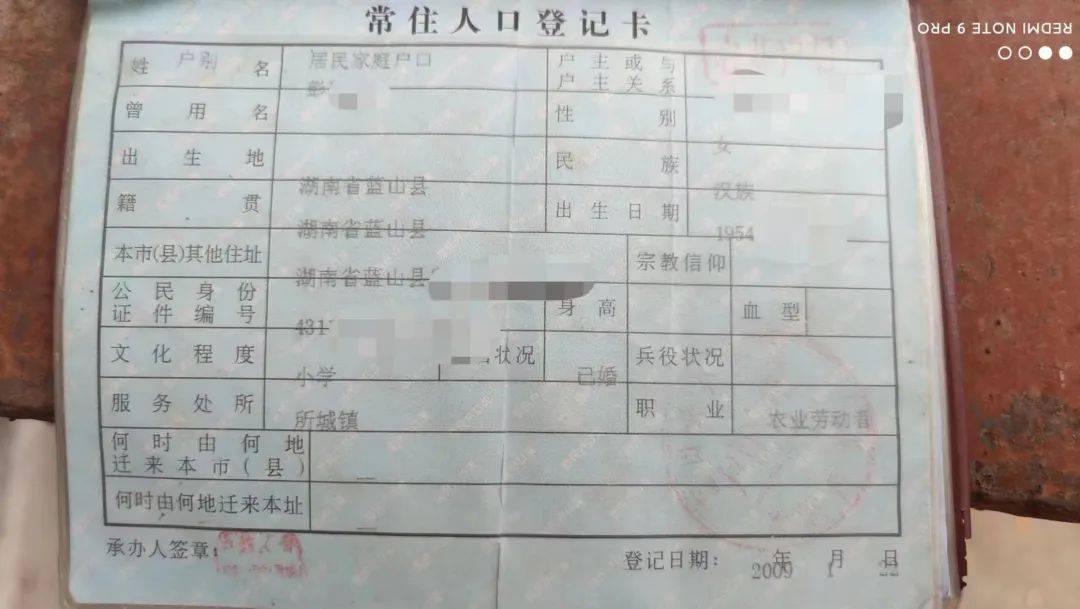 REDMI NOTE 9 PRO
常住人口登记卡
户别 居民家庭户口
姓名 彭
户主或与户主关系
曾用名
性别 女
出生地 湖南省蓝山县
民族 汉族
籍贯 湖南省蓝山县
出生日期 1954
本市(县)其他住址 湖南省蓝山县
宗教信仰
公民身份证件编号 431
身高
血型
文化程度 小学
状况 已婚
兵役状况
服务处所 所城镇
职业 农业劳动者
何时由何地迁来本市(县)
何时由何地迁来本址
承办人签章:
登记日期: 2009年1月22日